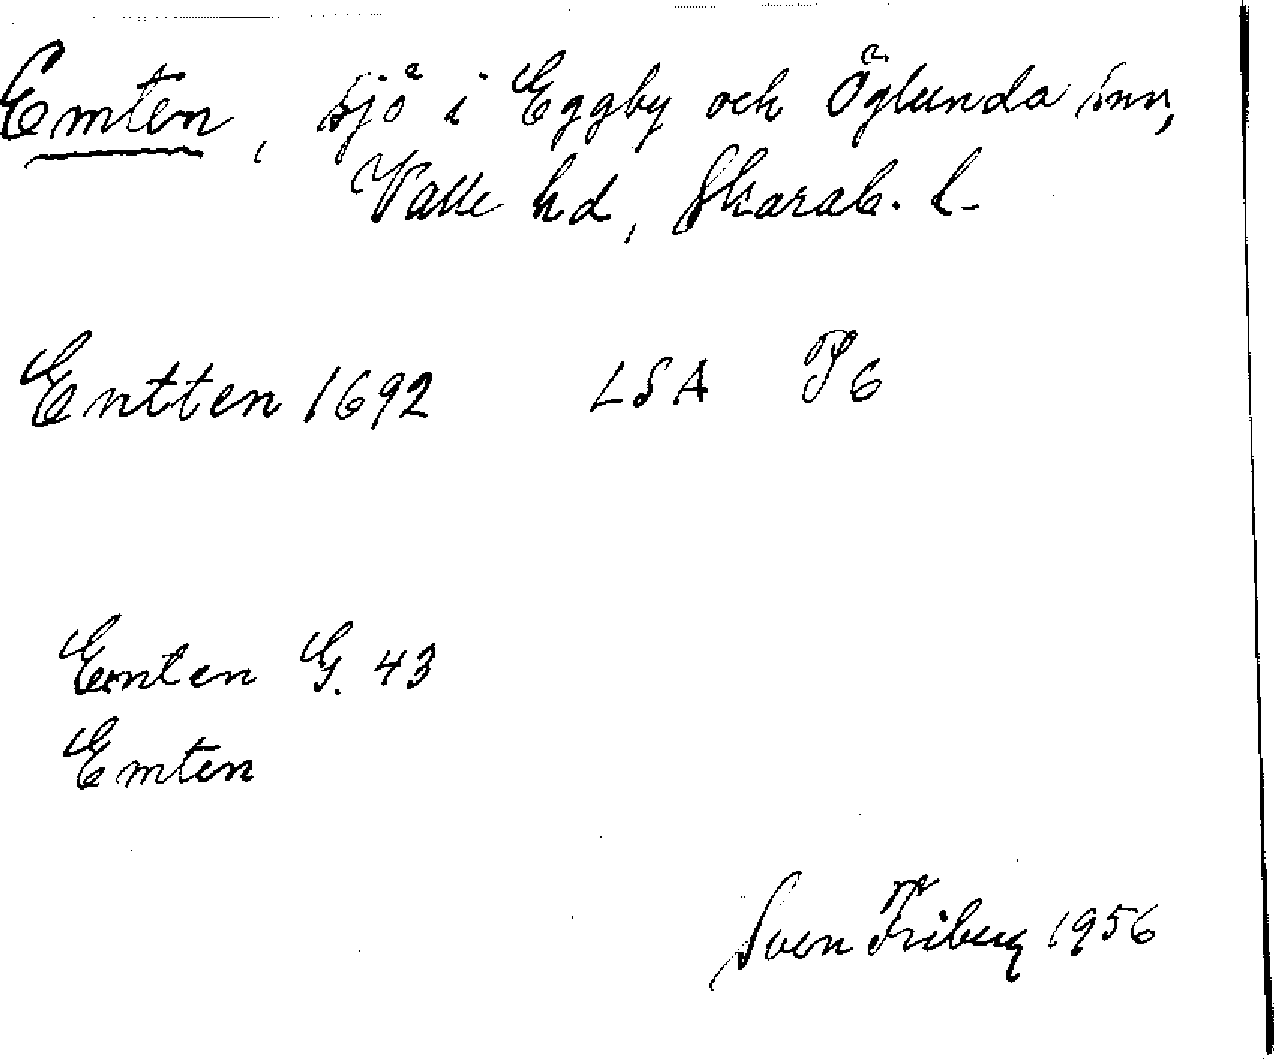 Emten, sjö i Eggby och Öglunda snr,
Valle hd, Skarab. l.
Entten 1692 LSA P6
Emten G. 43
Emten
Sven Friberg 1956